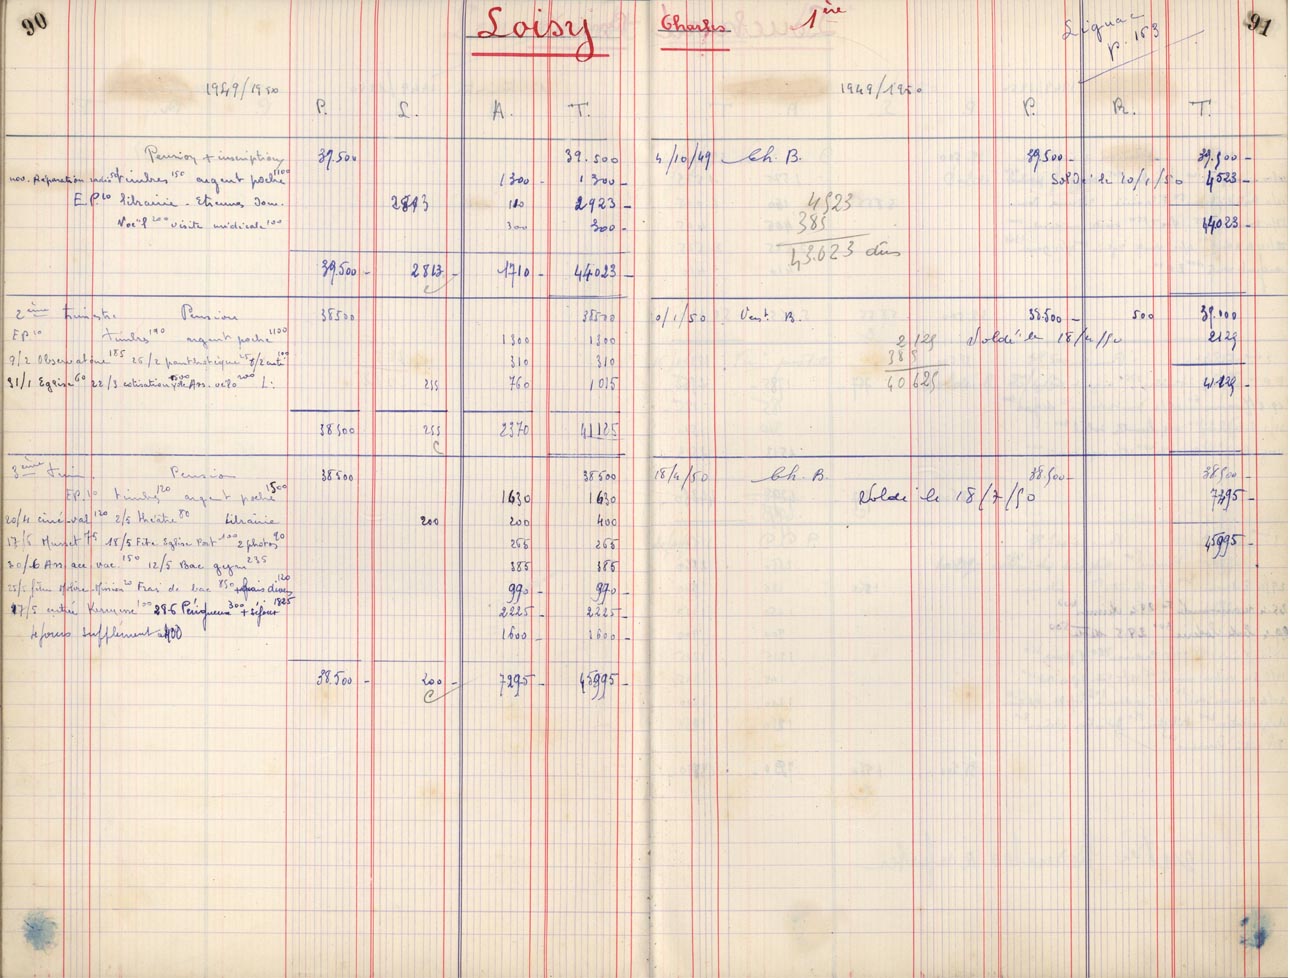 90
Loisy Charles 1ère
Lignac p. 153
91
1949/1950
P. L. A. T.
Pension + inscription 39.500 39.500
timbres 150 argent poche 1100 1300 1300 -
EP 10 librairie - Etrennes Dom. 2813 110 2923 -
Noël 200 visite médicale 100 300 300 -
39.500 - 2813 - 1710 - 44023 -
2ème trimestre Pension 38500 38500
EP. 10 timbres 190 argent poche 1100 1300 1300
9/2 Observatoire 185 310 310
31/1 Eglise 60 22/3 cotisation L: 255 760 1015
38500 255 2370 41125
3ème trim. Pension 38500 38500
EP. 10 timbres 120 argent poche 1500 1630 1630
20/4 ciné-val 120 2/5 théâtre 80 librairie 200 200 400
Musset 75 18/5 Fête Eglise Port 100 2 photos 90 265 265
30/6 Ass. acc. vac. 150 12/5 Bac gym 235 385 385
Frais de bac 850 + frais divers 120 990 - 990 -
27/5 entrée Kermesse 100 29.6 Périgueux 300 + séjour 1825 2225 - 2225 -
4 jours supplément à 400 1600 - 1600 -
38.500 - 200 - 7295 - 45995 -
1949/1950
P. R. T.
4/10/49 Ch. B. 39.500 - 39.500 -
Soldé le 20/1/50 4523 -
4523
385
44023 -
43.023 dûs
38.500 - 500 39.000
2129
385
Soldé le 18/4/50 2129
40625
41129 -
18/4/50 Ch. B. 38.500 - 38500 -
Soldé le 18/7/50 7495 -
45995 -